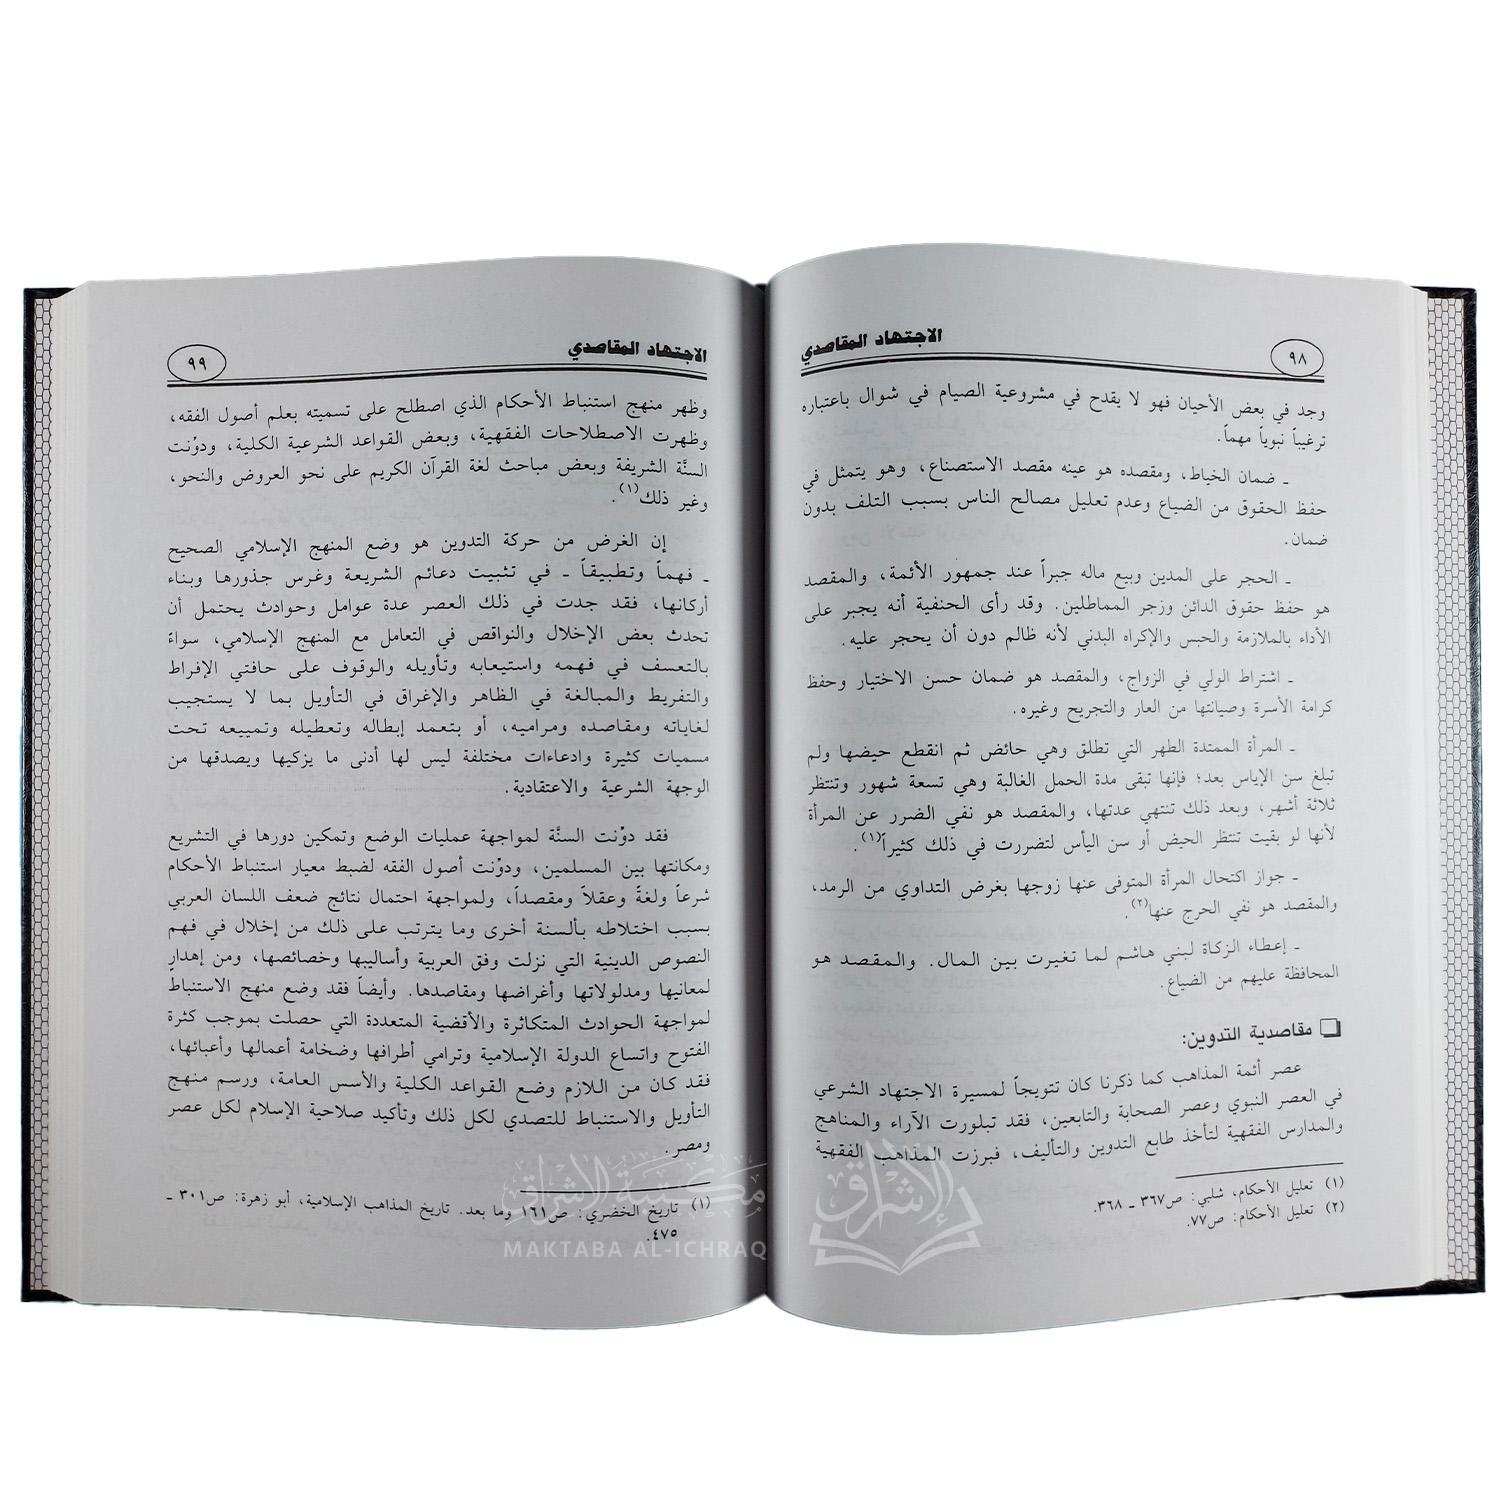 ٩٨
الاجتهاد المقاصدي
وجد في بعض الأحيان فهو لا يقدح في مشروعية الصيام في شوال باعتباره
ترغيباً نبوياً مهماً.
ـ ضمان الخياط، ومقصده هو عينه مقصد الاستصناع، وهو يتمثل في
حفظ الحقوق من الضياع وعدم تعليل مصالح الناس بسبب التلف بدون
ضمان.
ـ الحجر على المدين وبيع ماله جبراً عند جمهور الأئمة، والمقصد
هو حفظ حقوق الدائن وزجر المماطلين. وقد رأى الحنفية أنه يجبر على
الأداء بالملازمة والحبس والإكراه البدني لأنه ظالم دون أن يحجر عليه.
ـ اشتراط الولي في الزواج، والمقصد هو ضمان حسن الاختيار وحفظ
كرامة الأسرة وصيانتها من العار والتجريح وغيره.
ـ المرأة الممتدة الطهر التي تطلق وهي حائض ثم انقطع حيضها ولم
تبلغ سن الإياس بعد؛ فإنها تبقى مدة الحمل الغالبة وهي تسعة شهور وتنتظر
ثلاثة أشهر، وبعد ذلك تنتهي عدتها، والمقصد هو نفي الضرر عن المرأة
لأنها لو بقيت تنتظر الحيض أو سن اليأس لتضررت في ذلك كثيراً(١).
ـ جواز اكتحال المرأة المتوفى عنها زوجها بغرض التداوي من الرمد،
والمقصد هو نفي الحرج عنها(٢).
ـ إعطاء الزكاة لبني هاشم لما تغيرت بين المال. والمقصد هو
المحافظة عليهم من الضياع.
❏ مقاصدية التدوين:
عصر أئمة المذاهب كما ذكرنا كان تتويجاً لمسيرة الاجتهاد الشرعي
في العصر النبوي وعصر الصحابة والتابعين، فقد تبلورت الآراء والمناهج
والمدارس الفقهية لتأخذ طابع التدوين والتأليف، فبرزت المذاهب الفقهية
(١) تعليل الأحكام، شلبي: ص٣٦٧ ـ ٣٦٨.
(٢) تعليل الأحكام: ص٧٧.
الاجتهاد المقاصدي
٩٩
وظهر منهج استنباط الأحكام الذي اصطلح على تسميته بعلم أصول الفقه،
وظهرت الاصطلاحات الفقهية، وبعض القواعد الشرعية الكلية، ودوّنت
السنَّة الشريفة وبعض مباحث لغة القرآن الكريم على نحو العروض والنحو،
وغير ذلك(١).
إن الغرض من حركة التدوين هو وضع المنهج الإسلامي الصحيح
ـ فهماً وتطبيقاً ـ في تثبيت دعائم الشريعة وغرس جذورها وبناء
أركانها، فقد جدت في ذلك العصر عدة عوامل وحوادث يحتمل أن
تحدث بعض الإخلال والنواقص في التعامل مع المنهج الإسلامي، سواءً
بالتعسف في فهمه واستيعابه وتأويله والوقوف على حافتي الإفراط
والتفريط والمبالغة في الظاهر والإغراق في التأويل بما لا يستجيب
لغاياته ومقاصده ومراميه، أو بتعمد إبطاله وتعطيله وتمييعه تحت
مسميات كثيرة وادعاءات مختلفة ليس لها أدنى ما يزكيها ويصدقها من
الوجهة الشرعية والاعتقادية.
فقد دوّنت السنَّة لمواجهة عمليات الوضع وتمكين دورها في التشريع
ومكانتها بين المسلمين، ودوّنت أصول الفقه لضبط معيار استنباط الأحكام
شرعاً ولغةً وعقلاً ومقصداً، ولمواجهة احتمال نتائج ضعف اللسان العربي
بسبب اختلاطه بألسنة أخرى وما يترتب على ذلك من إخلال في فهم
النصوص الدينية التي نزلت وفق العربية وأساليبها وخصائصها، ومن إهدارٍ
لمعانيها ومدلولاتها وأغراضها ومقاصدها. وأيضاً فقد وضع منهج الاستنباط
لمواجهة الحوادث المتكاثرة والأقضية المتعددة التي حصلت بموجب كثرة
الفتوح واتساع الدولة الإسلامية وترامي أطرافها وضخامة أعمالها وأعبائها،
فقد كان من اللازم وضع القواعد الكلية والأسس العامة، ورسم منهج
التأويل والاستنباط للتصدي لكل ذلك وتأكيد صلاحية الإسلام لكل عصر
ومصر.
(١) تاريخ الخضري: ص١٦١ وما بعد. تاريخ المذاهب الإسلامية، أبو زهرة: ص٣٠١ ـ
٤٧٥.
مكتبة الإشراق
MAKTABA AL-ICHRAQ
الإشراق